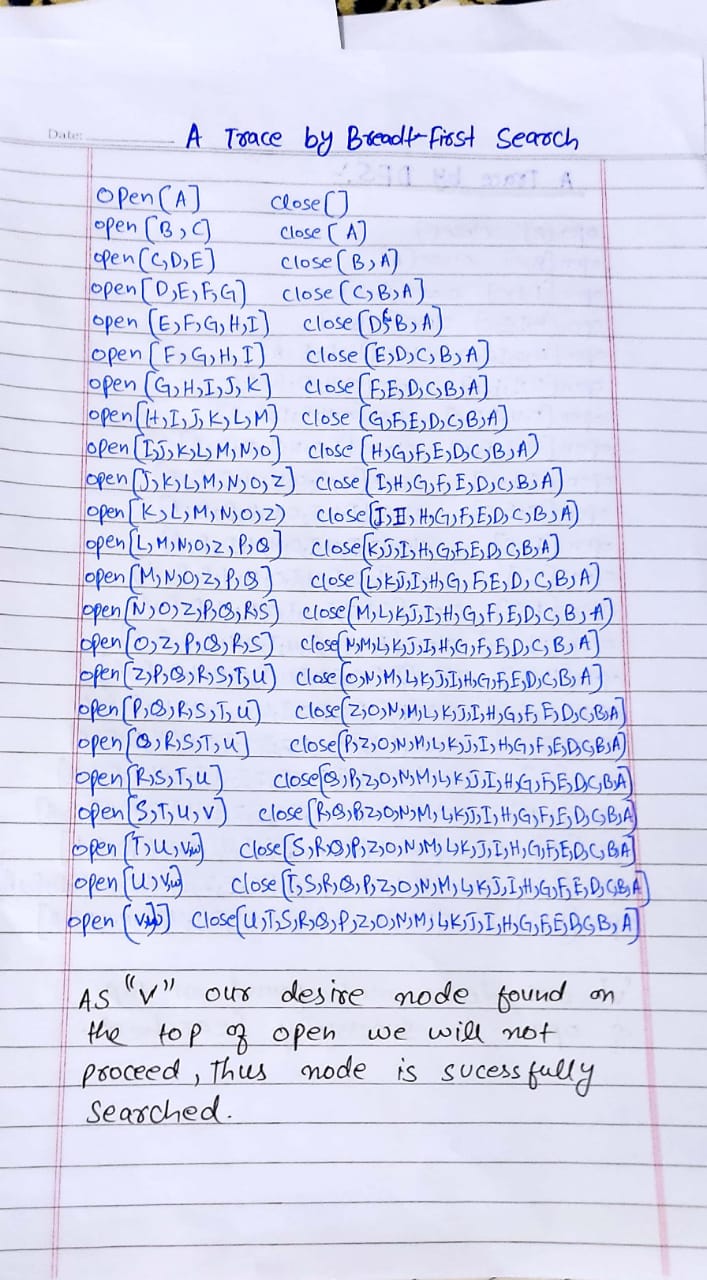 Date:
A Trace by Breadth First Search
open [A] close []
open [B, C] close [A]
open [C, D, E] close [B, A]
open [D, E, F, G] close [C, B, A]
open [E, F, G, H, I] close [D, C, B, A]
open [F, G, H, I] close [E, D, C, B, A]
open [G, H, I, J, K] close [F, E, D, C, B, A]
open [H, I, J, K, L, M] close [G, F, E, D, C, B, A]
open [I, J, K, L, M, N, O] close [H, G, F, E, D, C, B, A]
open [J, K, L, M, N, O, Z] close [I, H, G, F, E, D, C, B, A]
open [K, L, M, N, O, Z) close [J, I, H, G, F, E, D, C, B, A]
open [L, M, N, O, Z, P, Q] close [K, J, I, H, G, F, E, D, C, B, A]
open [M, N, O, Z, P, Q] close [L, K, J, I, H, G, F, E, D, C, B, A]
open [N, O, Z, P, Q, R, S] close [M, L, K, J, I, H, G, F, E, D, C, B, A]
open [O, Z, P, Q, R, S] close [N, M, L, K, J, I, H, G, F, E, D, C, B, A]
open [Z, P, Q, R, S, T, U] close [O, N, M, L, K, J, I, H, G, F, E, D, C, B, A]
open [P, Q, R, S, T, U] close [Z, O, N, M, L, K, J, I, H, G, F, E, D, C, B, A]
open [Q, R, S, T, U] close [P, Z, O, N, M, L, K, J, I, H, G, F, E, D, C, B, A]
open [R, S, T, U] close [Q, P, Z, O, N, M, L, K, J, I, H, G, F, E, D, C, B, A]
open [S, T, U, V] close [R, Q, P, Z, O, N, M, L, K, J, I, H, G, F, E, D, C, B, A]
open [T, U, V, W] close [S, R, Q, P, Z, O, N, M, L, K, J, I, H, G, F, E, D, C, B, A]
open [U, V, W] close [T, S, R, Q, P, Z, O, N, M, L, K, J, I, H, G, F, E, D, C, B, A]
open [V, W] close [U, T, S, R, Q, P, Z, O, N, M, L, K, J, I, H, G, F, E, D, C, B, A]
AS "V" our desire node found on
the top of open we will not
proceed, Thus node is sucessfully
Searched.